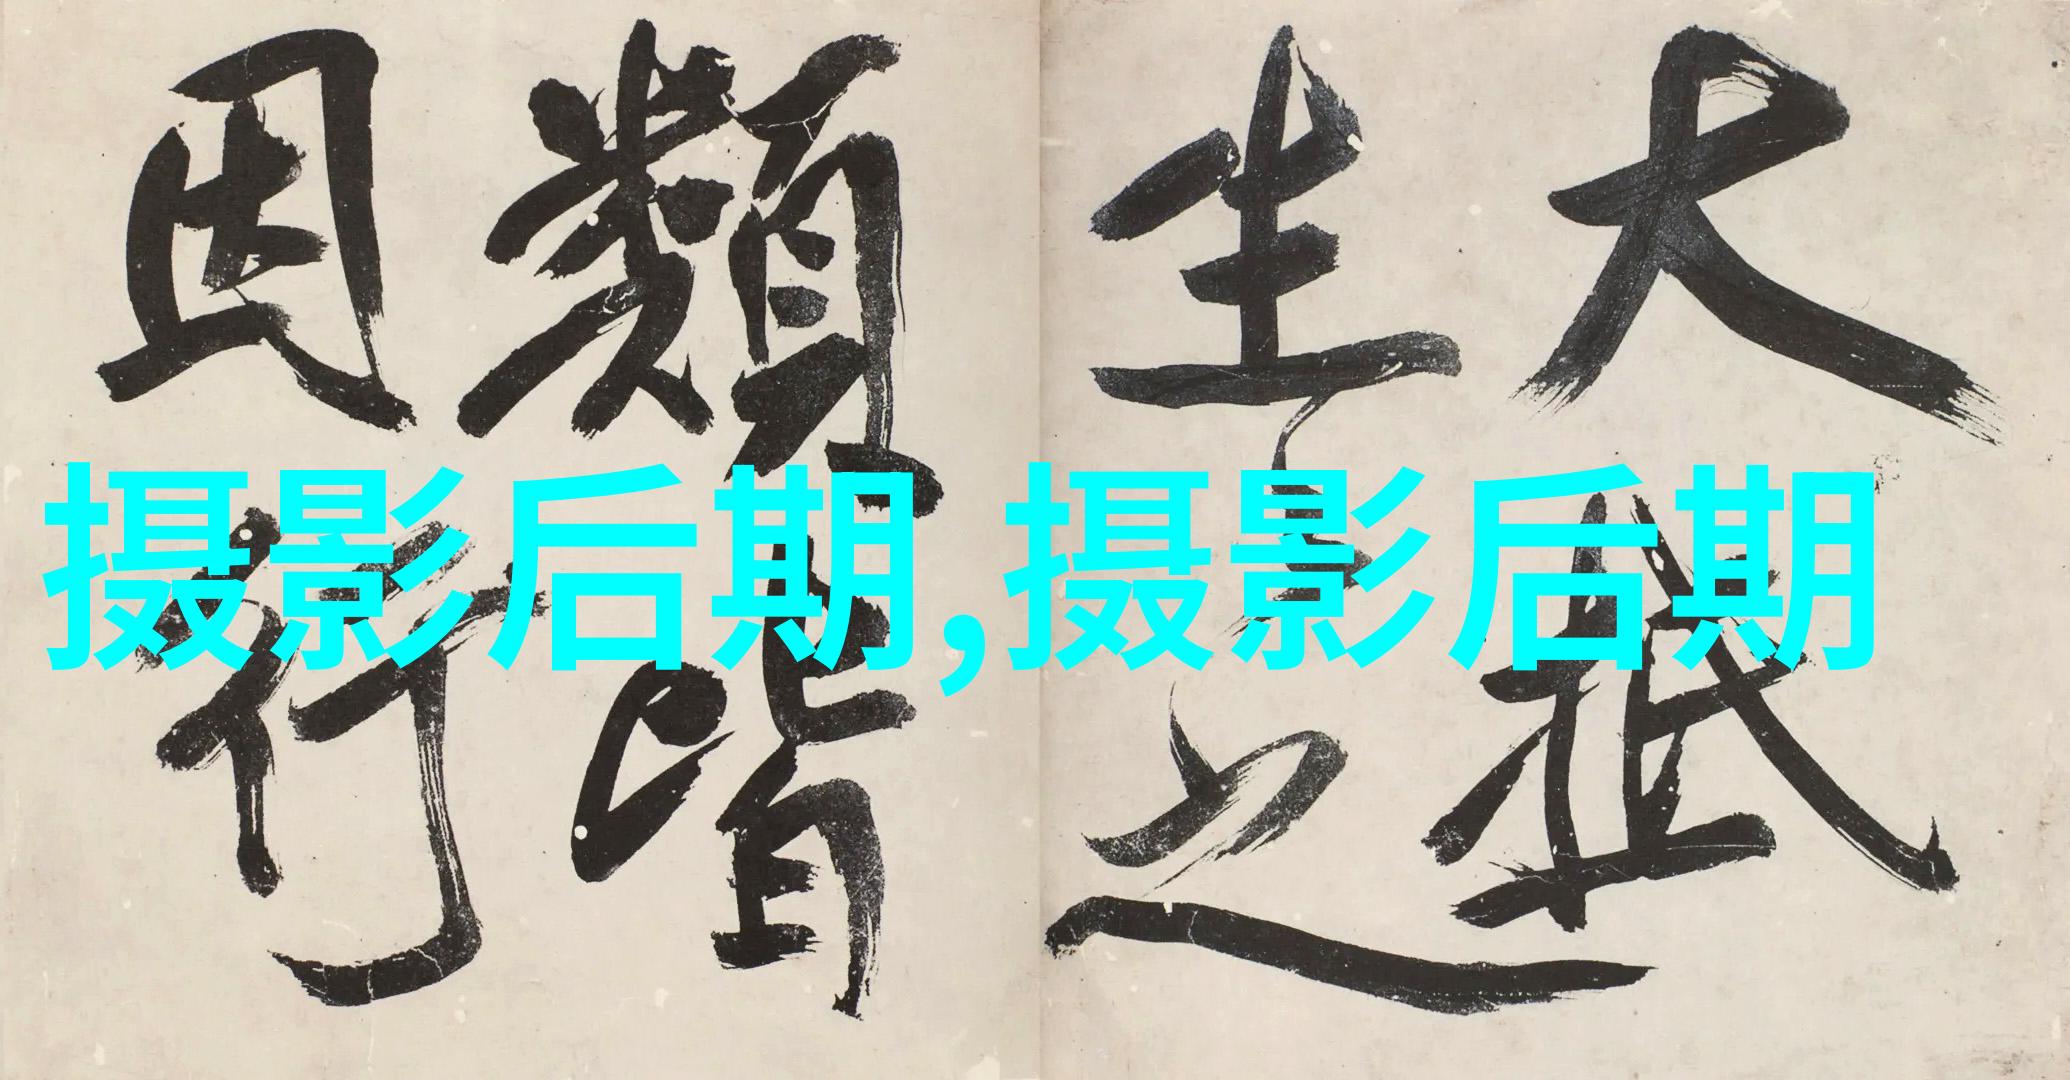 大抵
生之
類皆
因行
摄影后期,摄影后期